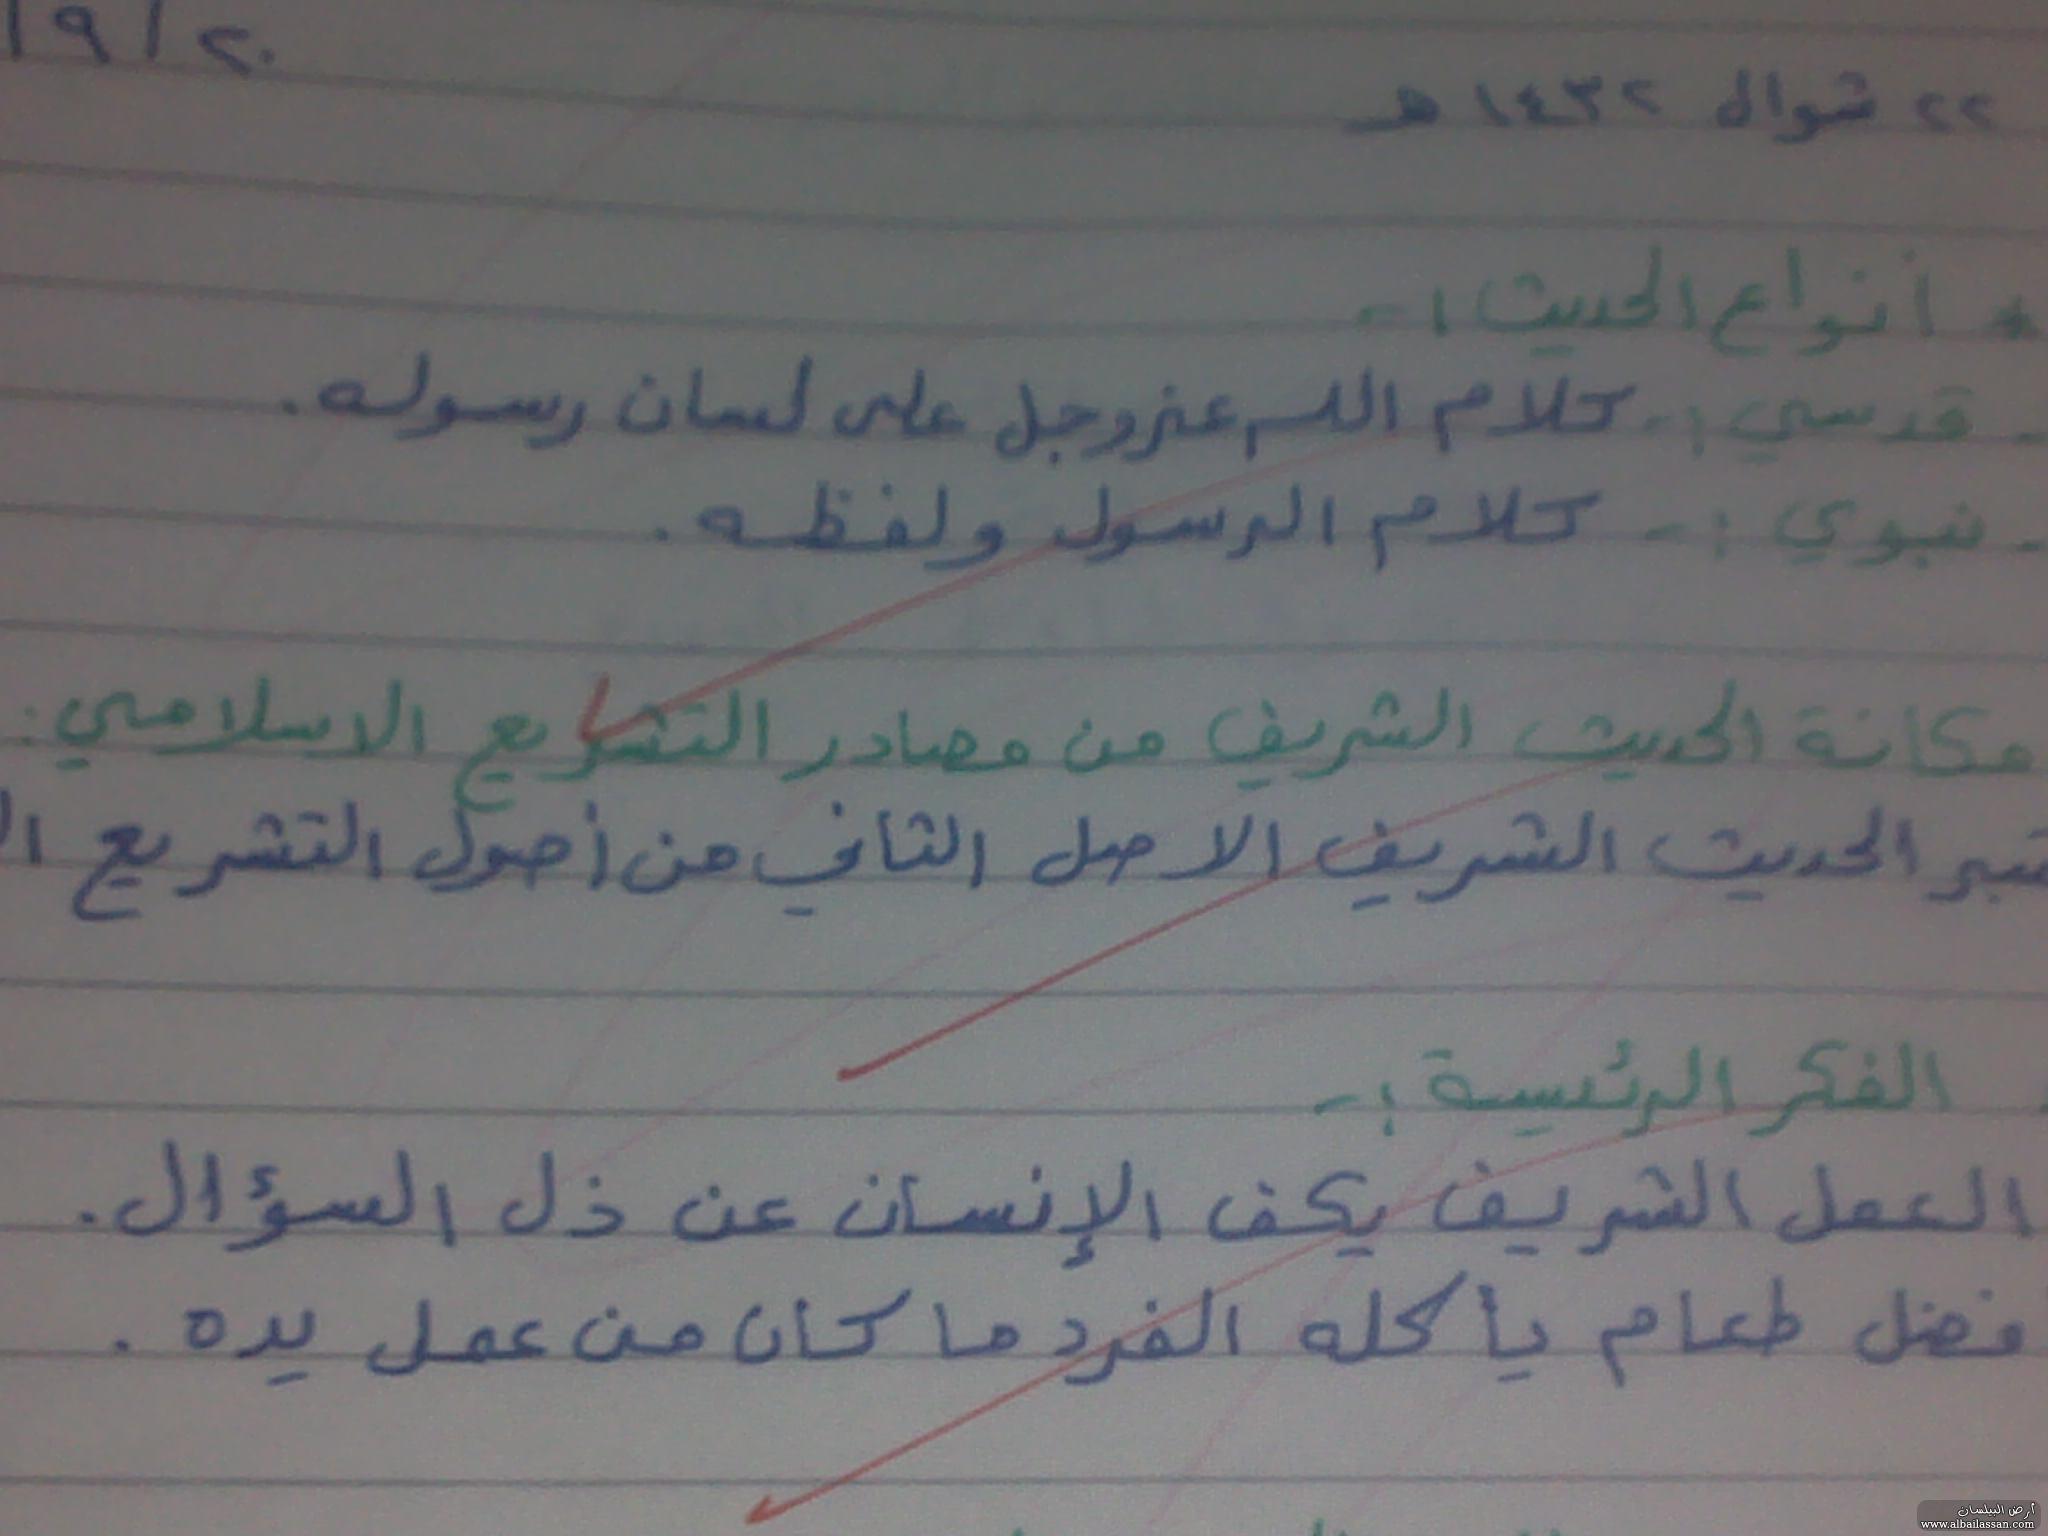 ٢٠ / ٩ /
٢٢ شوال ١٤٣٢ هـ
* أنواع الحديث :-
- قدسي :- كلام الله عز وجل على لسان رسوله .
- نبوي :- كلام الرسول ولفظه .
مكانة الحديث الشريف من مصادر التشريع الاسلامي :
تبر الحديث الشريف الاصل الثاني من أصول التشريع ال
الفكر الرئيسة :-
العمل الشريف يكف الإنسان عن ذل السؤال .
فضل طعام يأكله الفرد ما كان من عمل يده .
أرض البيلسان
www.albailassan.com